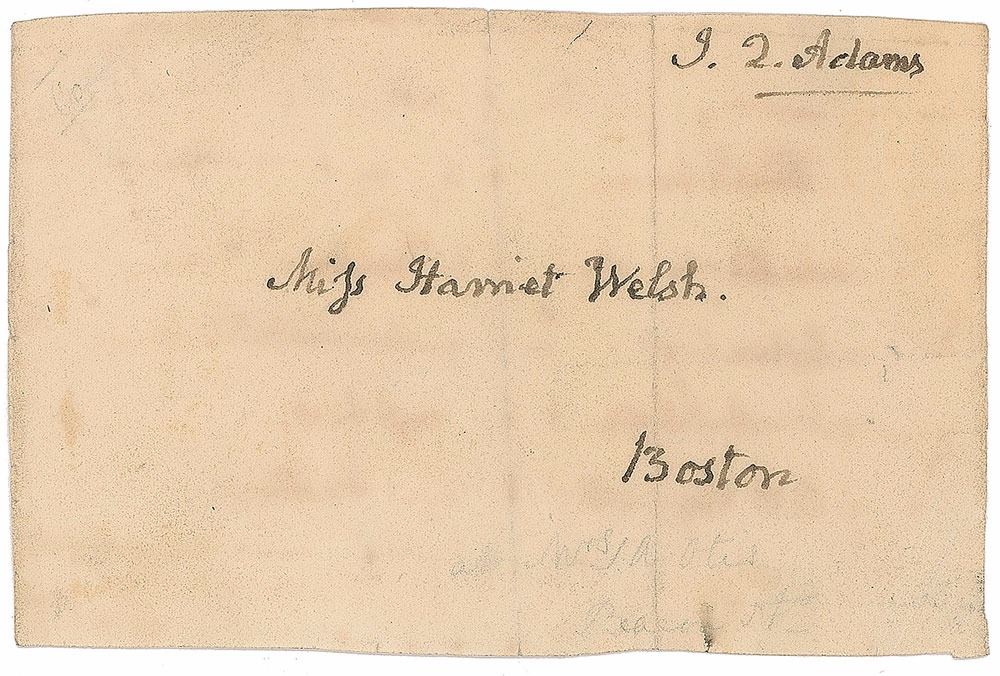 J. Q. Adams
Miſs Harriet Welsh.
Boston
at Mrs Otis
Beacon St